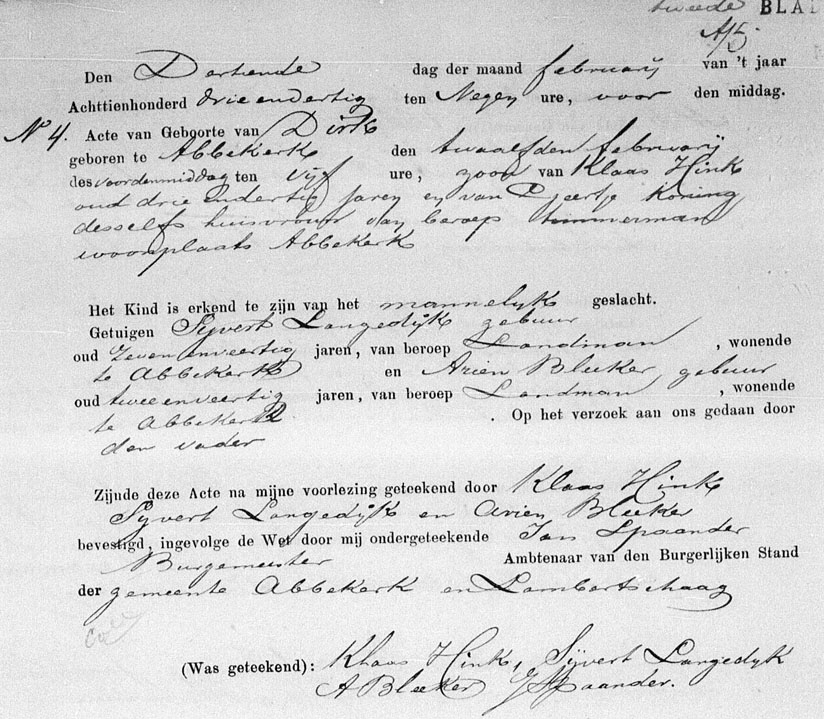 tweede BLAD
A/5
Den Dertiende dag der maand februarij van 't jaar
Achttienhonderd drie en dertig ten Negen ure, voor den middag.
N° 4. Acte van Geboorte van Dirk
geboren te Abbekerk den twaalfden februarij
des voordenmiddag ten vijf ure, zoon van Klaas Hink
oud drie endertig jaren en van Djeertje Koning
desselfs huisvrouw van beroep timmerman
woonplaats Abbekerk
Het Kind is erkend te zijn van het mannelijk geslacht.
Getuigen Sijvert Langedijk gebuur
oud zeven enveertig jaren, van beroep Landman, wonende
te Abbekerk en Arien Bleeker, gebuur
oud tweeenveertig jaren, van beroep Landman, wonende
te Abbekerk . Op het verzoek aan ons gedaan door
den vader
Zijnde deze Acte na mijne voorlezing geteekend door Klaas Hink
Sijvert Langedijk en Arien Bleeker
bevestigd, ingevolge de Wet door mij ondergeteekende Jan Spaander
Burgemeister Ambtenaar van den Burgerlijken Stand
der gemeente Abbekerk en Lambertschaag
(Was geteekend): Klaas Hink, Sijvert Langedyk
A Bleeker J Spaander.